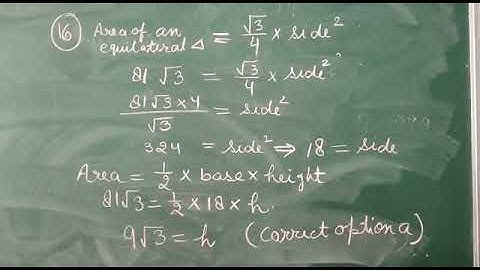 16 Area of an equilateral △ = √3/4 × side²
81√3 = √3/4 × side²
81√3×4/√3 = side²
324 = side² ⇒ 18 = side
Area = 1/2 × base × height
81√3 = 1/2 × 18 × h.
9√3 = h (Correct option a)